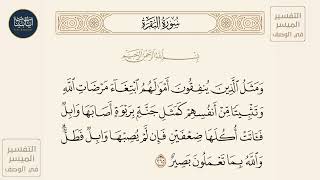 التفسير
الميسر
في الوصف
سُورَةُ البَقَرَةِ
بِسْمِ اللَّهِ الرَّحْمَٰنِ الرَّحِيمِ
وَمَثَلُ ٱلَّذِينَ يُنفِقُونَ أَمْوَٰلَهُمُ ٱبْتِغَآءَ مَرْضَاتِ ٱللَّهِ
وَتَثْبِيتًا مِّنْ أَنفُسِهِمْ كَمَثَلِ جَنَّةٍۭ بِرَبْوَةٍ أَصَابَهَا وَابِلٌ
فَـَٔاتَتْ أُكُلَهَا ضِعْفَيْنِ فَإِن لَّمْ يُصِبْهَا وَابِلٌ فَطَلٌّ ۗ
وَٱللَّهُ بِمَا تَعْمَلُونَ بَصِيرٌ
التفسير
الميسر
في الوصف